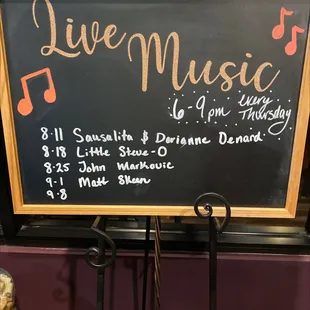 Live Music
6-9pm every
Thursday
8.11 Sausalita & Dorianne Denard
8.18 Little Steve-O
8.25 John Markovic
9.1 Matt Skeen
9.8